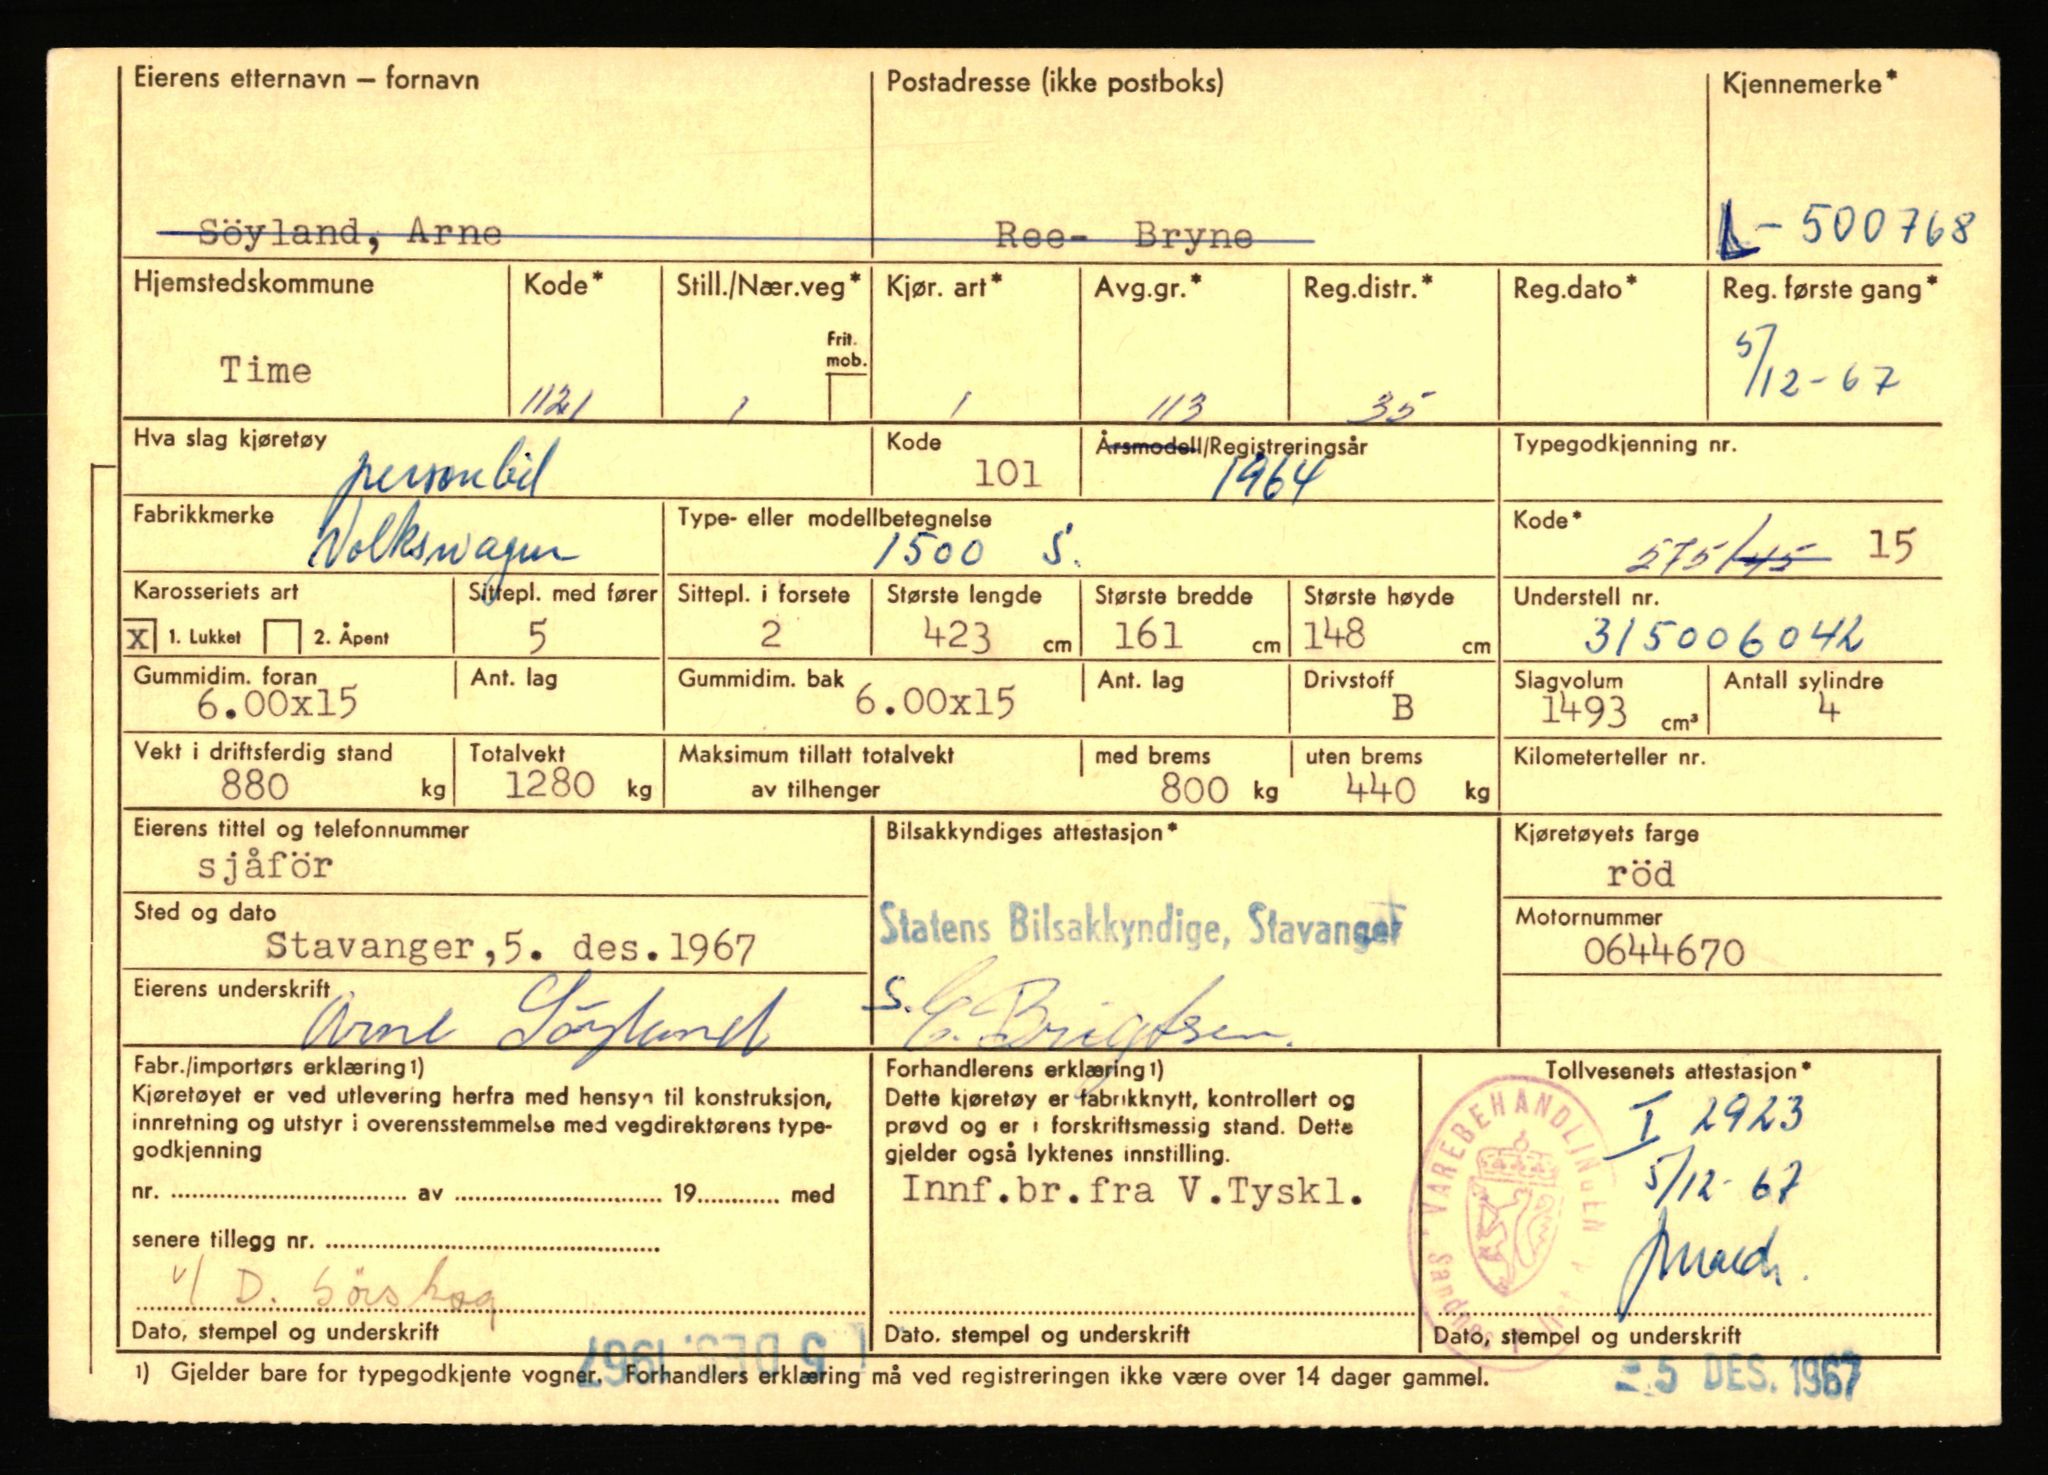 Eierens etternavn — fornavn Postadresse (ikke postboks) Kjennemerke*
Söyland, Arne Ree- Bryne L-500768
Hjemstedskommune Kode* Still./Nær.veg* Kjør. art* Avg.gr.* Reg.distr.* Reg.dato* Reg. første gang*
Frit. mob.
Time 1121 1 1 113 35 5/12-67
Hva slag kjøretøy Kode Årsmodell/Registreringsår Typegodkjenning nr.
personbil 101 1964
Fabrikkmerke Type- eller modellbetegnelse Kode*
Volkswagen 1500 S. 575/45 15
Karosseriets art Sittepl. med fører Sittepl. i forsete Største lengde Største bredde Største høyde Understell nr.
X 1. Lukket 2. Åpent 5 2 423 cm 161 cm 148 cm 315006042
Gummidim. foran Ant. lag Gummidim. bak Ant. lag Drivstoff Slagvolum Antall sylindre
6.00x15 6.00x15 B 1493 cm³ 4
Vekt i driftsferdig stand Totalvekt Maksimum tillatt totalvekt med brems uten brems Kilometerteller nr.
880 kg 1280 kg av tilhenger 800 kg 440 kg
Eierens tittel og telefonnummer Bilsakkyndiges attestasjon* Kjøretøyets farge
sjåför röd
Sted og dato Statens Bilsakkyndige, Stavanger Motornummer
Stavanger,5. des.1967 0644670
Eierens underskrift
Arne Söyland S. C. Brigtsen.
Fabr./importørs erklæring 1) Forhandlerens erklæring 1) Tollvesenets attestasjon*
Kjøretøyet er ved utlevering herfra med hensyn til konstruksjon, Dette kjøretøy er fabrikknytt, kontrollert og I 2923
innretning og utstyr i overensstemmelse med vegdirektørens type- prøvd og er i forskriftsmessig stand. Dette
godkjenning gjelder også lyktenes innstilling. 5/12-67
nr. .......... av .......... 19.......... med Innf.br.fra V.Tyskl.
senere tillegg nr. ..........
VAREBEHANDLINGEN
v/ D. Sörskog
Dato, stempel og underskrift Dato. stempel og underskrift Dato, stempel og underskrift
5 DES. 1967
1) Gjelder bare for typegodkjente vogner. Forhandlers erklæring må ved registreringen ikke være over 14 dager gammel.
- 5 DES. 1967